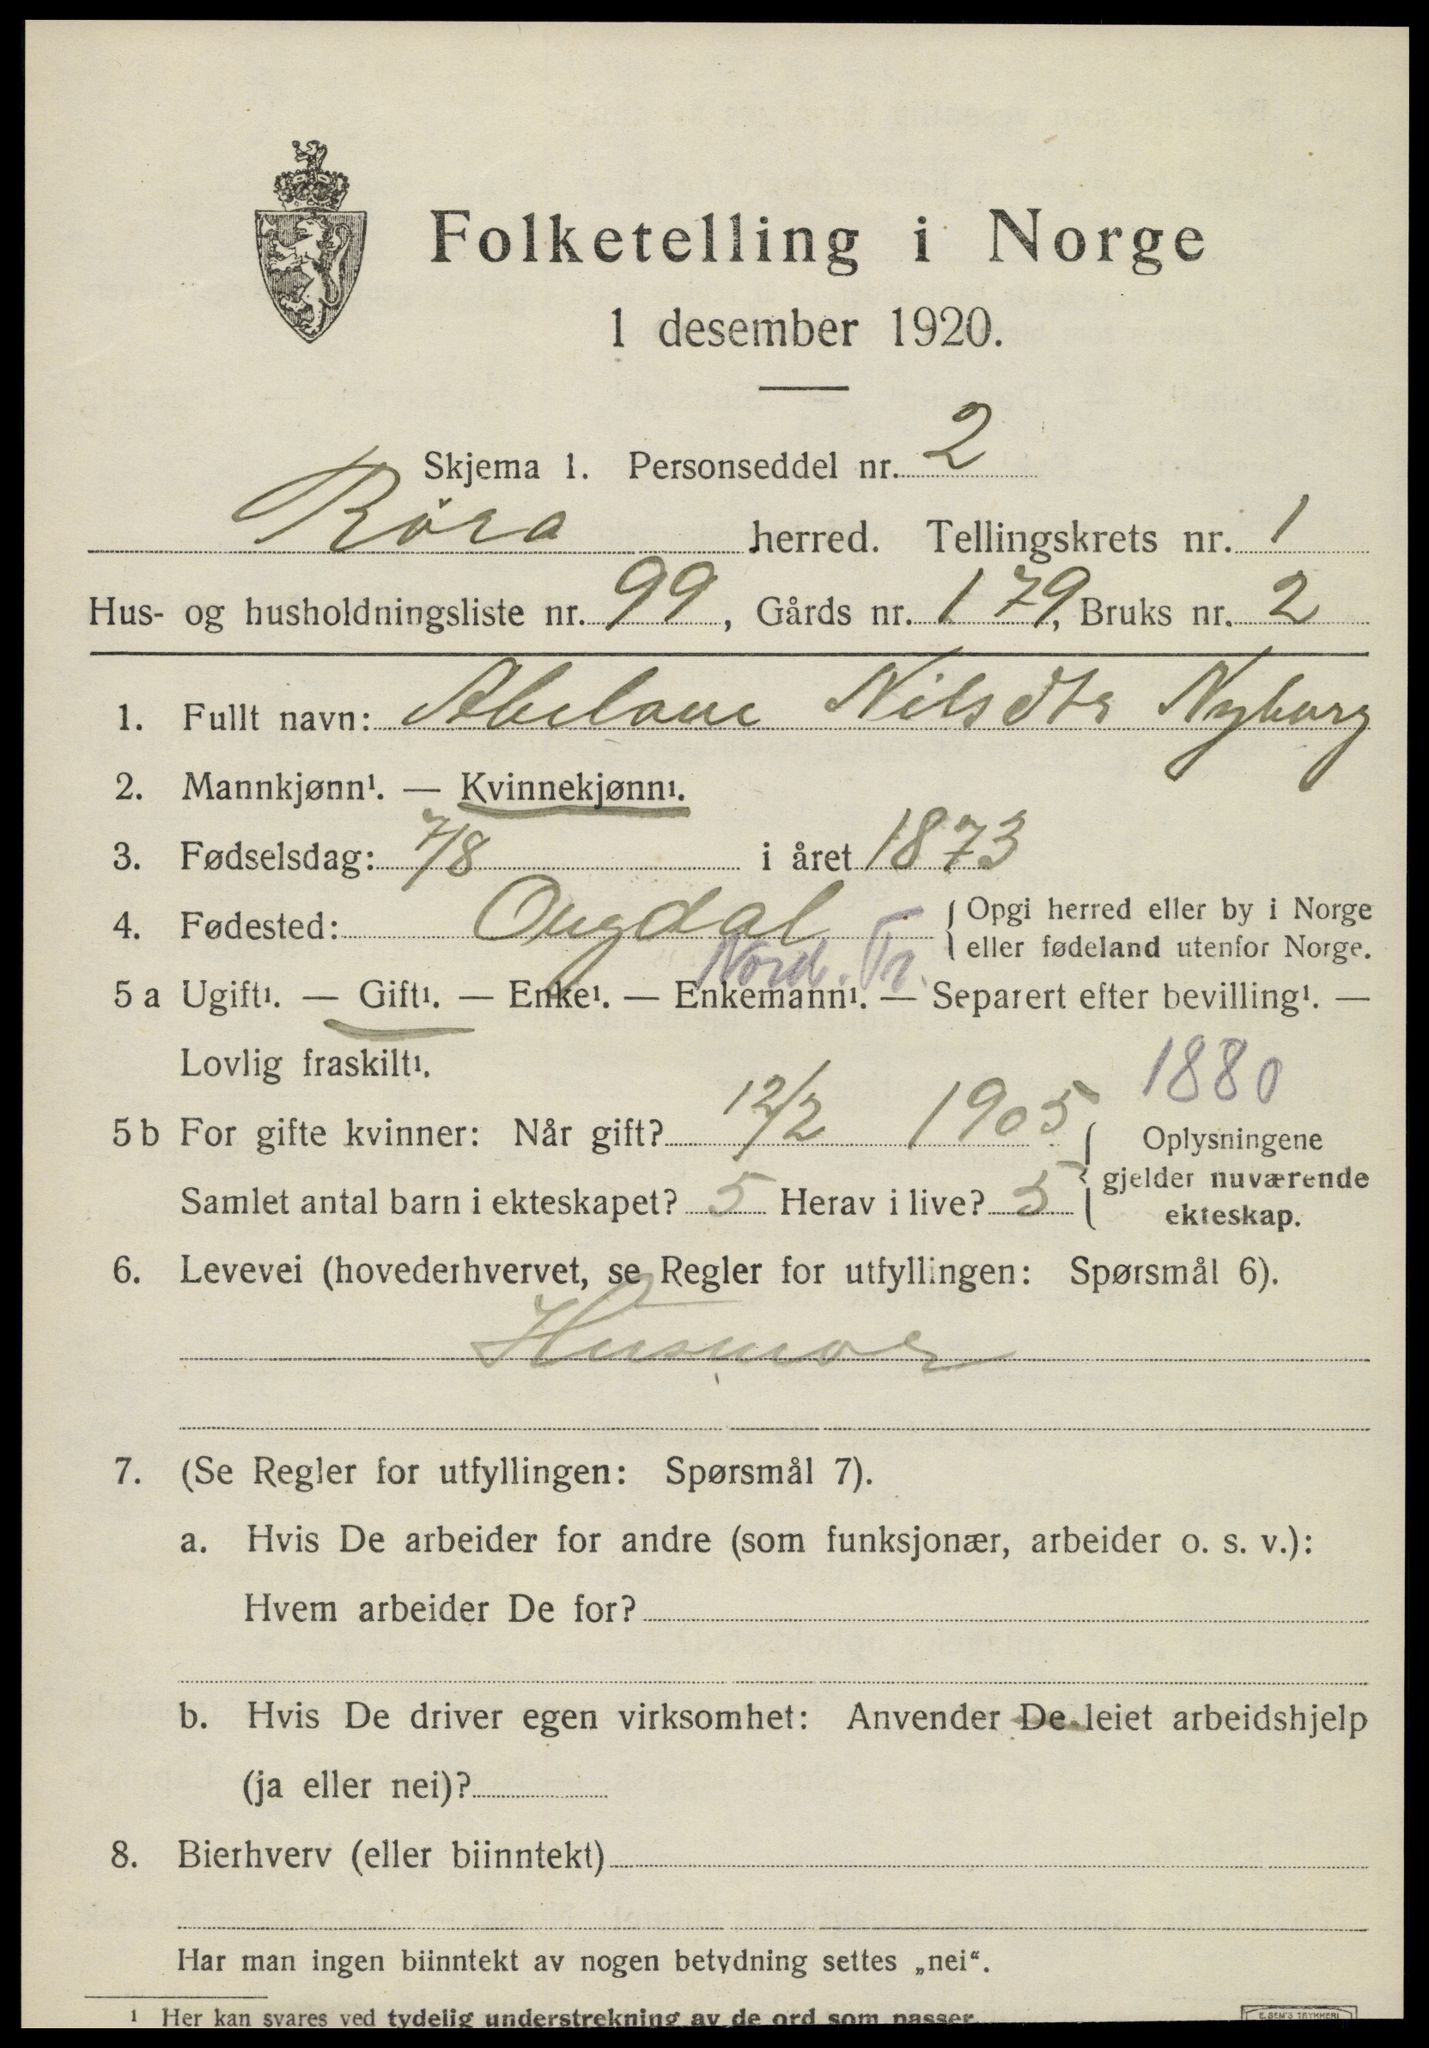 Folketelling i Norge
1 desember 1920.
Skjema 1. Personseddel nr. 2
Röra herred. Tellingskrets nr. 1
Hus- og husholdningsliste nr. 99, Gårds nr. 179, Bruks nr. 2
1. Fullt navn: Abelone Nilsdtr Nyborg
2. Mannkjønn¹. — Kvinnekjønn¹.
3. Fødselsdag: 7/8 i året 1873
4. Fødested: Ougdal { Opgi herred eller by i Norge
eller fødeland utenfor Norge.
Nord. Tr.
5 a Ugift¹. — Gift¹. — Enke¹. — Enkemann¹. — Separert efter bevilling¹. —
Lovlig fraskilt¹.
1880
5 b For gifte kvinner: Når gift? 12/2 1905 { Oplysningene
gjelder nuværende
Samlet antal barn i ekteskapet? 5 Herav i live? 5
ekteskap.
6. Levevei (hovederhvervet, se Regler for utfyllingen: Spørsmål 6).
Husmor
7. (Se Regler for utfyllingen: Spørsmål 7).
a. Hvis De arbeider for andre (som funksjonær, arbeider o. s. v.):
Hvem arbeider De for?
b. Hvis De driver egen virksomhet: Anvender De leiet arbeidshjelp
(ja eller nei)?
8. Bierhverv (eller biinntekt)
Har man ingen biinntekt av nogen betydning settes „nei“.
¹ Her kan svares ved tydelig understrekning av de ord som passer.
E. SEM'S TRYKKERI